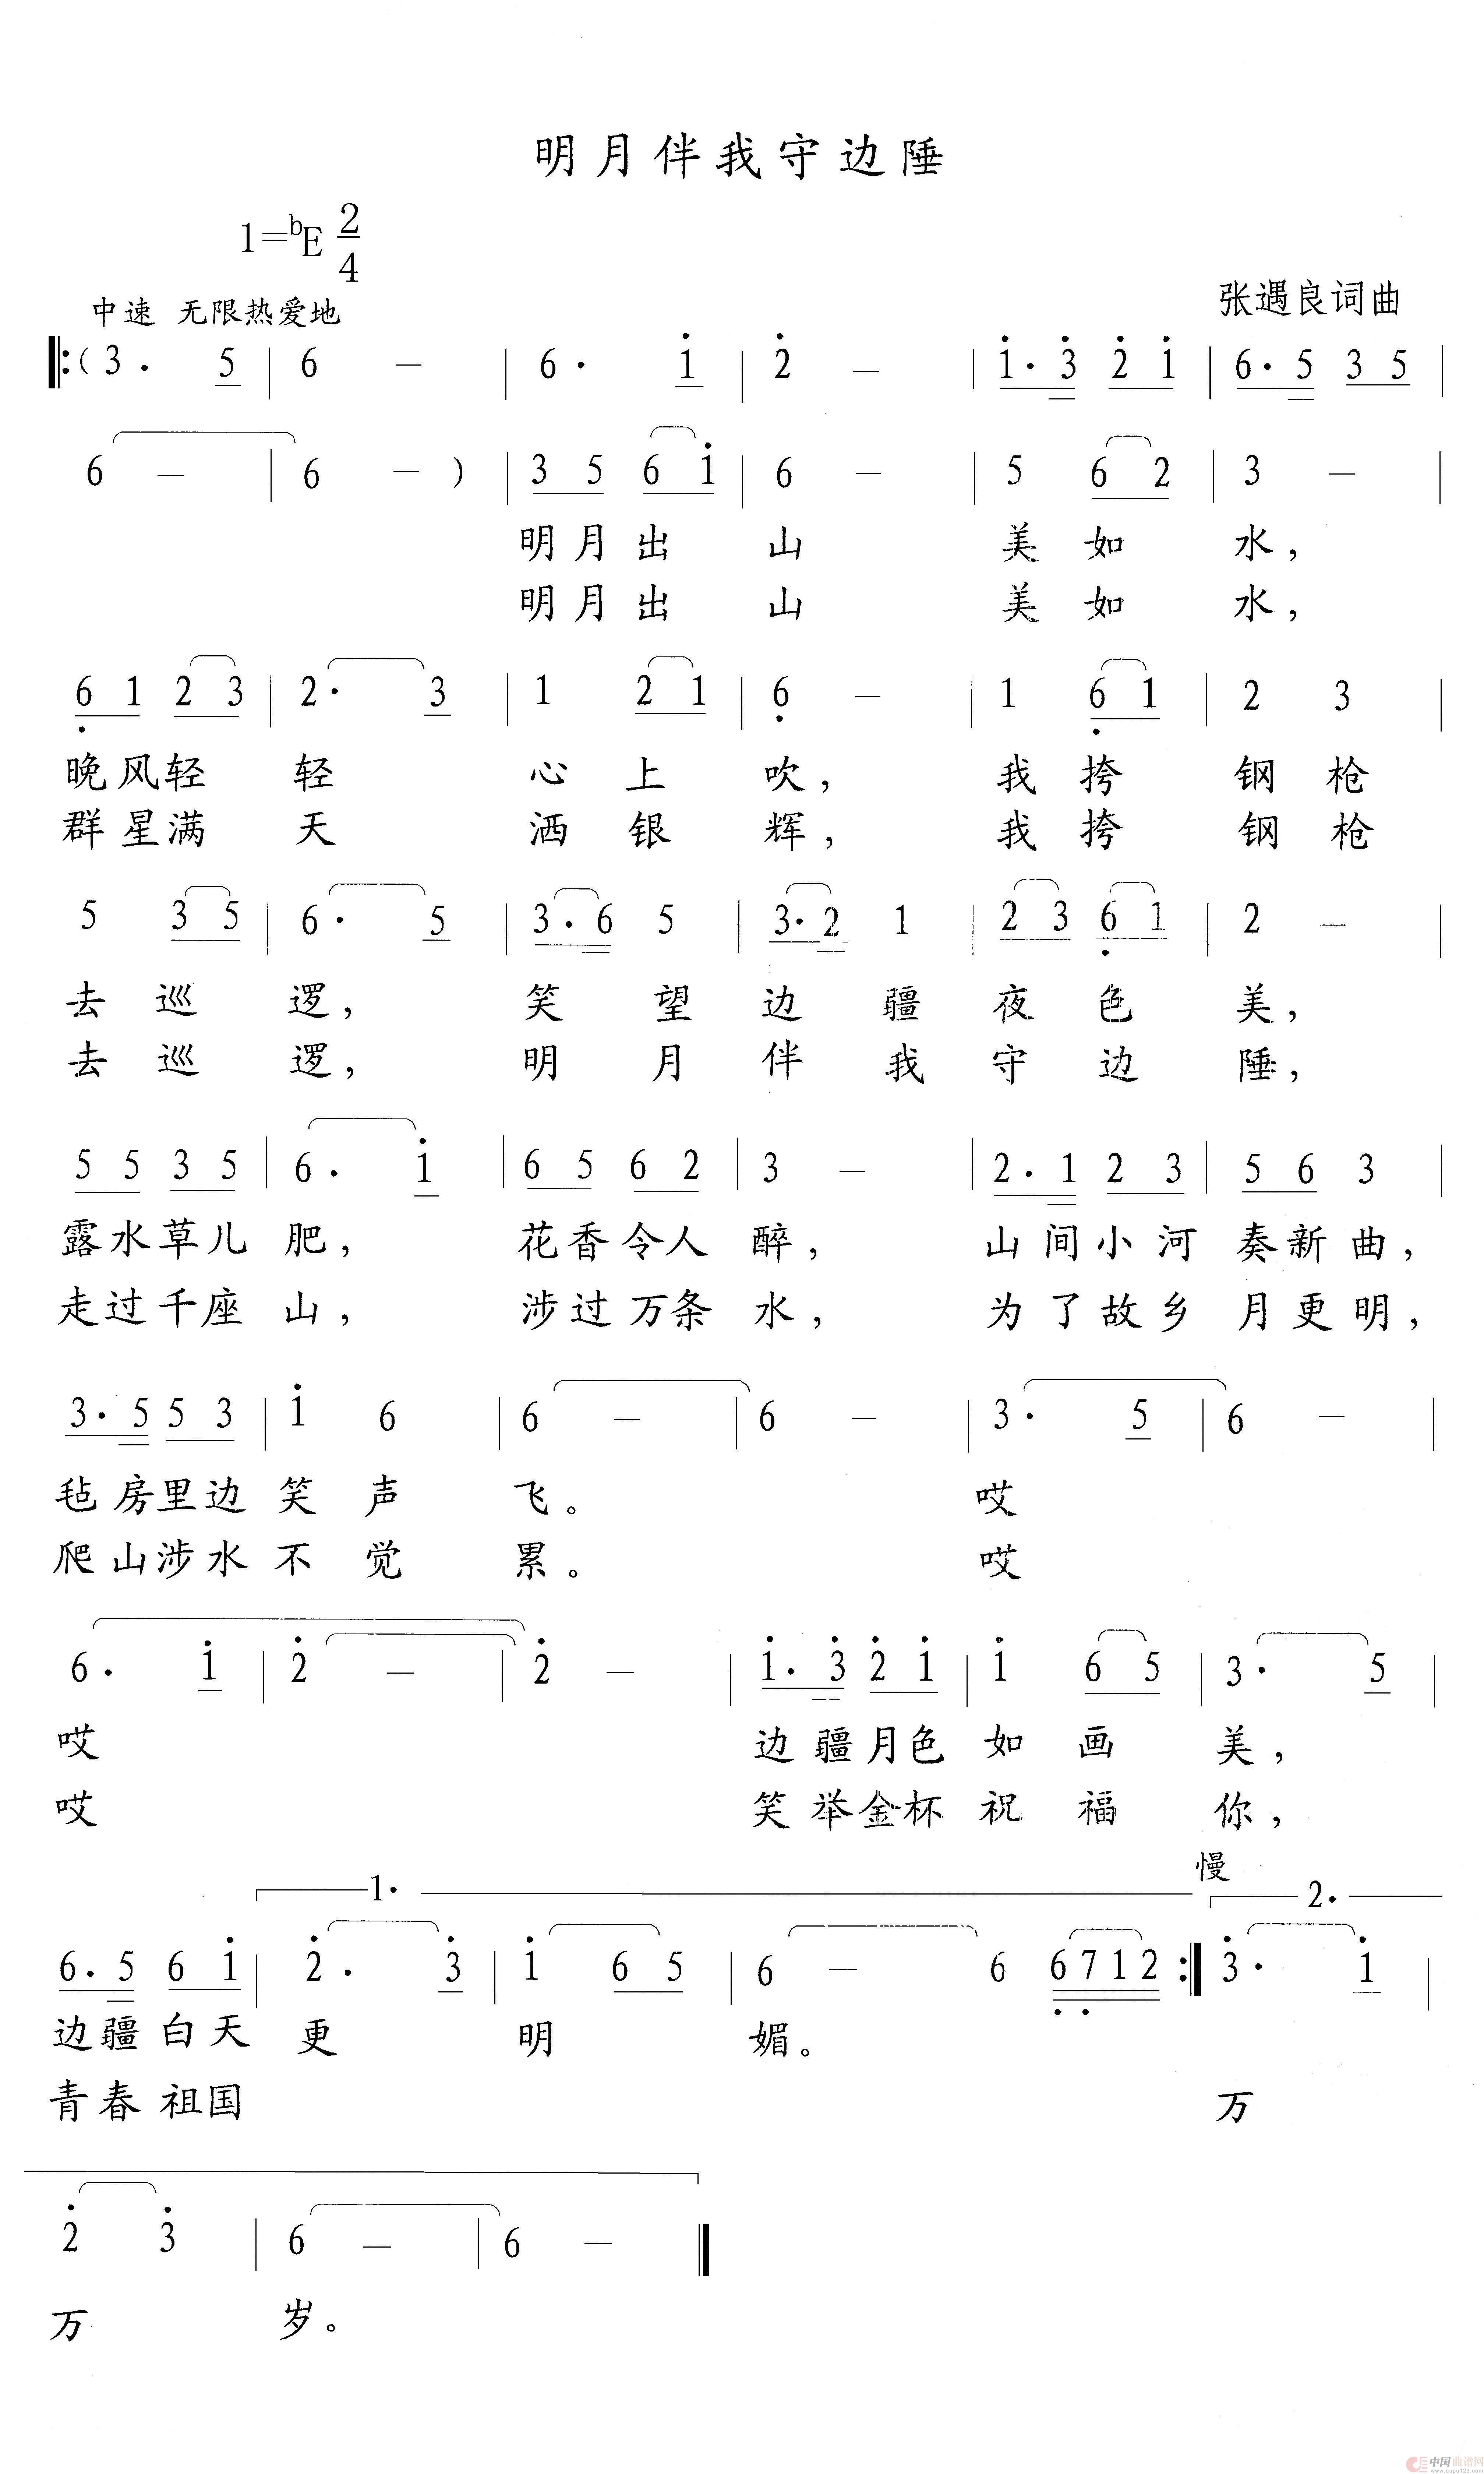 明月伴我守边陲
1=bE 2/4
中速 无限热爱地
张遇良词曲
( 3· 5 | 6 — | 6· 1 | 2 — | 1·3 2 1 | 6·5 3 5 |
6 — | 6 — ) | 3 5 6 1 | 6 — | 5 6 2 | 3 — |
明月出 山 美如 水,
明月出 山 美如 水,
6 1 2 3 | 2· 3 | 1 2 1 | 6 — | 1 6 1 | 2 3 |
晚风轻 轻 心上 吹, 我挎 钢枪
群星满 天 洒银 辉, 我挎 钢枪
5 3 5 | 6· 5 | 3·6 5 | 3·2 1 | 2 3 6 1 | 2 — |
去巡 逻, 笑望 边疆 夜色 美,
去巡 逻, 明月 伴我 守边 陲,
5 5 3 5 | 6· 1 | 6 5 6 2 | 3 — | 2·1 2 3 | 5 6 3 |
露水草儿 肥, 花香令人 醉, 山间小河 奏新曲,
走过千座 山, 涉过万条 水, 为了故乡 月更明,
3·5 5 3 | 1 6 | 6 — | 6 — | 3· 5 | 6 — |
毡房里边 笑声 飞。 哎
爬山涉水 不觉 累。 哎
6· 1 | 2 — | 2 — | 1·3 2 1 | 1 6 5 | 3· 5 |
哎 边疆月色 如画 美,
哎 笑举金杯 祝福 你,
慢
1· 2·
6·5 6 1 | 2· 3 | 1 6 5 | 6 — 6 6712 :| 3· 1 |
边疆白天 更 明 媚。
青春祖国 万
2 3 | 6 — | 6 — ‖
万 岁。
中国曲谱网
www.qupu123.com